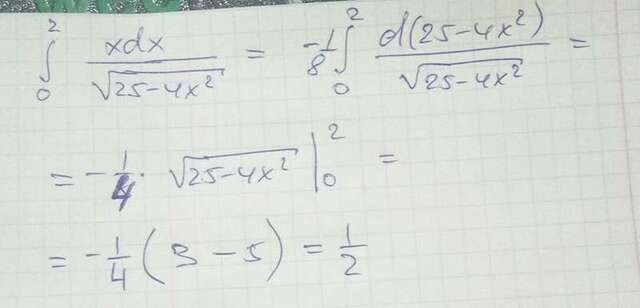 ∫₀² xdx/√(25-4x²) = -1/8 ∫₀² d(25-4x²)/√(25-4x²) =
= -1/4 · √(25-4x²) |₀² =
= -1/4 (3 - 5) = 1/2